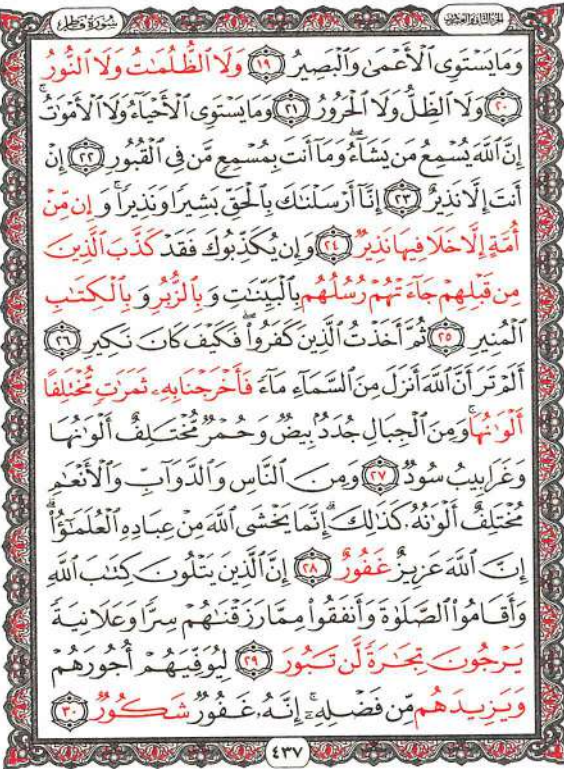 سُورَةُ فَاطِرٍ الجزء الثاني والعشرون
وَمَا يَسْتَوِى ٱلْأَعْمَىٰ وَٱلْبَصِيرُ ١٩ وَلَا ٱلظُّلُمَـٰتُ وَلَا ٱلنُّورُ
٢٠ وَلَا ٱلظِّلُّ وَلَا ٱلْحَرُورُ ٢١ وَمَا يَسْتَوِى ٱلْأَحْيَآءُ وَلَا ٱلْأَمْوَٰتُۚ
إِنَّ ٱللَّهَ يُسْمِعُ مَن يَشَآءُۖ وَمَآ أَنتَ بِمُسْمِعٍ مَّن فِى ٱلْقُبُورِ ٢٢ إِنْ
أَنتَ إِلَّا نَذِيرٌ ٢٣ إِنَّآ أَرْسَلْنَـٰكَ بِٱلْحَقِّ بَشِيرًا وَنَذِيرًاۚ وَإِن مِّنْ
أُمَّةٍ إِلَّا خَلَا فِيهَا نَذِيرٌ ٢٤ وَإِن يُكَذِّبُوكَ فَقَدْ كَذَّبَ ٱلَّذِينَ
مِن قَبْلِهِمْ جَآءَتْهُمْ رُسُلُهُم بِٱلْبَيِّنَـٰتِ وَبِٱلزُّبُرِ وَبِٱلْكِتَـٰبِ
ٱلْمُنِيرِ ٢٥ ثُمَّ أَخَذْتُ ٱلَّذِينَ كَفَرُوا۟ۖ فَكَيْفَ كَانَ نَكِيرِ ٢٦
أَلَمْ تَرَ أَنَّ ٱللَّهَ أَنزَلَ مِنَ ٱلسَّمَآءِ مَآءً فَأَخْرَجْنَا بِهِۦ ثَمَرَٰتٍ مُّخْتَلِفًا
أَلْوَٰنُهَاۚ وَمِنَ ٱلْجِبَالِ جُدَدٌۢ بِيضٌ وَحُمْرٌ مُّخْتَلِفٌ أَلْوَٰنُهَا
وَغَرَابِيبُ سُودٌ ٢٧ وَمِنَ ٱلنَّاسِ وَٱلدَّوَآبِّ وَٱلْأَنْعَـٰمِ
مُخْتَلِفٌ أَلْوَٰنُهُۥ كَذَٰلِكَۗ إِنَّمَا يَخْشَى ٱللَّهَ مِنْ عِبَادِهِ ٱلْعُلَمَـٰٓؤُا۟ۗ
إِنَّ ٱللَّهَ عَزِيزٌ غَفُورٌ ٢٨ إِنَّ ٱلَّذِينَ يَتْلُونَ كِتَـٰبَ ٱللَّهِ
وَأَقَامُوا۟ ٱلصَّلَوٰةَ وَأَنفَقُوا۟ مِمَّا رَزَقْنَـٰهُمْ سِرًّا وَعَلَانِيَةً
يَرْجُونَ تِجَـٰرَةً لَّن تَبُورَ ٢٩ لِيُوَفِّيَهُمْ أُجُورَهُمْ
وَيَزِيدَهُم مِّن فَضْلِهِۦٓۚ إِنَّهُۥ غَفُورٌ شَكُورٌ ٣٠
٤٣٧